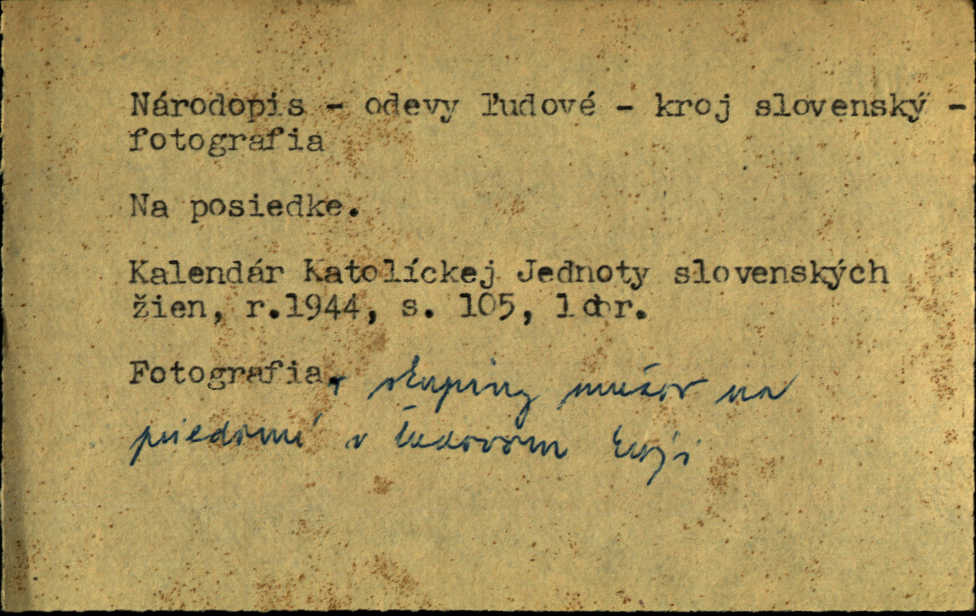 Národopis - odevy ľudové - kroj slovenský -
fotografia
Na posiedke.
Kalendár Katolíckej Jednoty slovenských
žien, r.1944, s. 105, 1 obr.
Fotografia skupiny mužov na
priedomí v ľudovom kroji